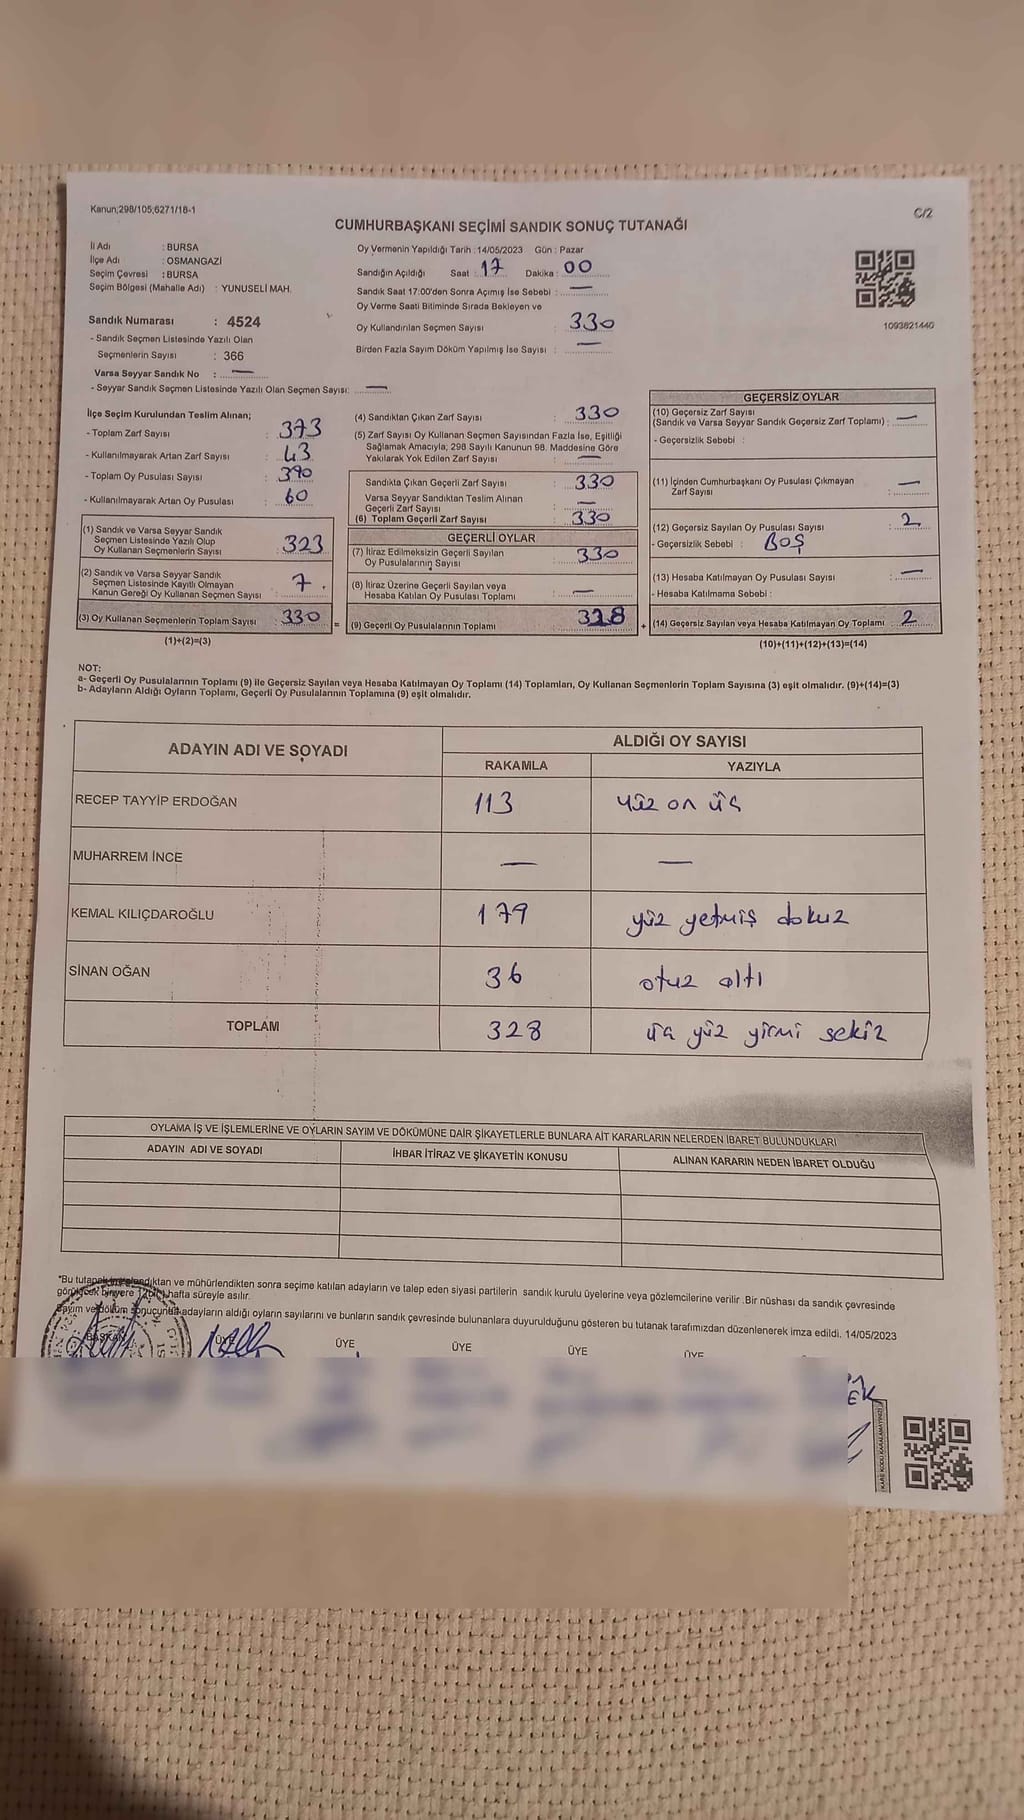 Kanun;298/105;6271/18-1
C/2
CUMHURBAŞKANI SEÇİMİ SANDIK SONUÇ TUTANAĞI
İl Adı : BURSA
İlçe Adı : OSMANGAZİ
Seçim Çevresi : BURSA
Seçim Bölgesi (Mahalle Adı) : YUNUSELİ MAH.
Sandık Numarası : 4524
- Sandık Seçmen Listesinde Yazılı Olan
Seçmenlerin Sayısı : 366
Varsa Seyyar Sandık No : —
- Seyyar Sandık Seçmen Listesinde Yazılı Olan Seçmen Sayısı: —
Oy Vermenin Yapıldığı Tarih :14/05/2023 Gün : Pazar
Sandığın Açıldığı Saat : 17 Dakika : 00
Sandık Saat 17:00'den Sonra Açımış İse Sebebi : —
Oy Verme Saati Bitiminde Sırada Bekleyen ve
Oy Kullandırılan Seçmen Sayısı : 330
Birden Fazla Sayım Döküm Yapılmış İse Sayısı : —
1093821440
İlçe Seçim Kurulundan Teslim Alınan;
- Toplam Zarf Sayısı : 373
- Kullanılmayarak Artan Zarf Sayısı : 43
- Toplam Oy Pusulası Sayısı : 390
- Kullanılmayarak Artan Oy Pusulası : 60
(1) Sandık ve Varsa Seyyar Sandık
Seçmen Listesinde Yazılı Olup
Oy Kullanan Seçmenlerin Sayısı : 323
(2) Sandık ve Varsa Seyyar Sandık
Seçmen Listesinde Kayıtlı Olmayan
Kanun Gereği Oy Kullanan Seçmen Sayısı : 7
(3) Oy Kullanan Seçmenlerin Toplam Sayısı : 330
(1)+(2)=(3)
(4) Sandıktan Çıkan Zarf Sayısı : 330
(5) Zarf Sayısı Oy Kullanan Seçmen Sayısından Fazla İse, Eşitliği
Sağlamak Amacıyla; 298 Sayılı Kanunun 98. Maddesine Göre
Yakılarak Yok Edilen Zarf Sayısı : —
Sandıkta Çıkan Geçerli Zarf Sayısı : 330
Varsa Seyyar Sandıktan Teslim Alınan
Geçerli Zarf Sayısı : —
(6) Toplam Geçerli Zarf Sayısı : 330
GEÇERLİ OYLAR
(7) İtiraz Edilmeksizin Geçerli Sayılan
Oy Pusulalarının Sayısı : 330
(8) İtiraz Üzerine Geçerli Sayılan veya
Hesaba Katılan Oy Pusulası Toplamı : —
= (9) Geçerli Oy Pusulalarının Toplamı : 328
GEÇERSİZ OYLAR
(10) Geçersiz Zarf Sayısı
(Sandık ve Varsa Seyyar Sandık Geçersiz Zarf Toplamı) : —
- Geçersizlik Sebebi :
(11) İçinden Cumhurbaşkanı Oy Pusulası Çıkmayan
Zarf Sayısı : —
(12) Geçersiz Sayılan Oy Pusulası Sayısı : 2
- Geçersizlik Sebebi : BOŞ
(13) Hesaba Katılmayan Oy Pusulası Sayısı : —
- Hesaba Katılmama Sebebi :
+ (14) Geçersiz Sayılan veya Hesaba Katılmayan Oy Toplamı : 2
(10)+(11)+(12)+(13)=(14)
NOT:
a- Geçerli Oy Pusulalarının Toplamı (9) ile Geçersiz Sayılan veya Hesaba Katılmayan Oy Toplamı (14) Toplamları, Oy Kullanan Seçmenlerin Toplam Sayısına (3) eşit olmalıdır. (9)+(14)=(3)
b- Adayların Aldığı Oyların Toplamı, Geçerli Oy Pusulalarının Toplamına (9) eşit olmalıdır.
ADAYIN ADI VE SOYADI ALDIĞI OY SAYISI
RAKAMLA YAZIYLA
RECEP TAYYİP ERDOĞAN 113 yüz on üç
MUHARREM İNCE — —
KEMAL KILIÇDAROĞLU 179 yüz yetmiş dokuz
SİNAN OĞAN 36 otuz altı
TOPLAM 328 üç yüz yirmi sekiz
OYLAMA İŞ VE İŞLEMLERİNE VE OYLARIN SAYIM VE DÖKÜMÜNE DAİR ŞİKAYETLERLE BUNLARA AİT KARARLARIN NELERDEN İBARET BULUNDUKLARI
ADAYIN ADI VE SOYADI İHBAR İTİRAZ VE ŞİKAYETİN KONUSU ALINAN KARARIN NEDEN İBARET OLDUĞU
*Bu tutanak imzalandıktan ve mühürlendikten sonra seçime katılan adayların ve talep eden siyasi partilerin sandık kurulu üyelerine veya gözlemcilerine verilir .Bir nüshası da sandık çevresinde
görülecek bir yere 1 bir hafta süreyle asılır.
Sayım ve döküm sonucunda adayların aldığı oyların sayılarını ve bunların sandık çevresinde bulunanlara duyurulduğunu gösteren bu tutanak tarafımızdan düzenlenerek imza edildi. 14/05/2023
BAŞKAN ÜYE ÜYE ÜYE ÜYE ÜYE